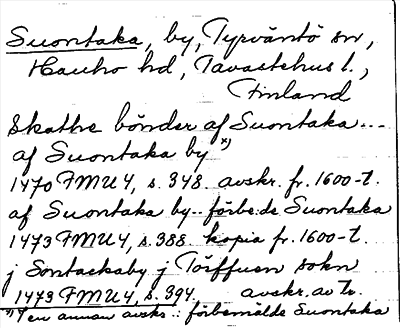 Suontaka, by, Tyrväntö sn,
Hauho hd, Tavastehus l.,
Finland
Skathe bönder af Suontaka...
af Suontaka by *)
1470 FMU 4, s. 348. avskr. fr. 1600-t.
af Suontaka by.. förbe:de Suontaka
1473 FMU 4, s. 388. kopia fr. 1600-t.
j Sontackaby j Töiffuen sokn
1473 FMU 4, s. 394. avskr. av tr.
*) I en annan avskr.: förbemälde Suontaka